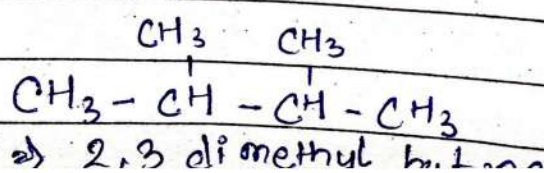 CH3 CH3
CH3 - CH - CH - CH3
a) 2,3 dimethyl